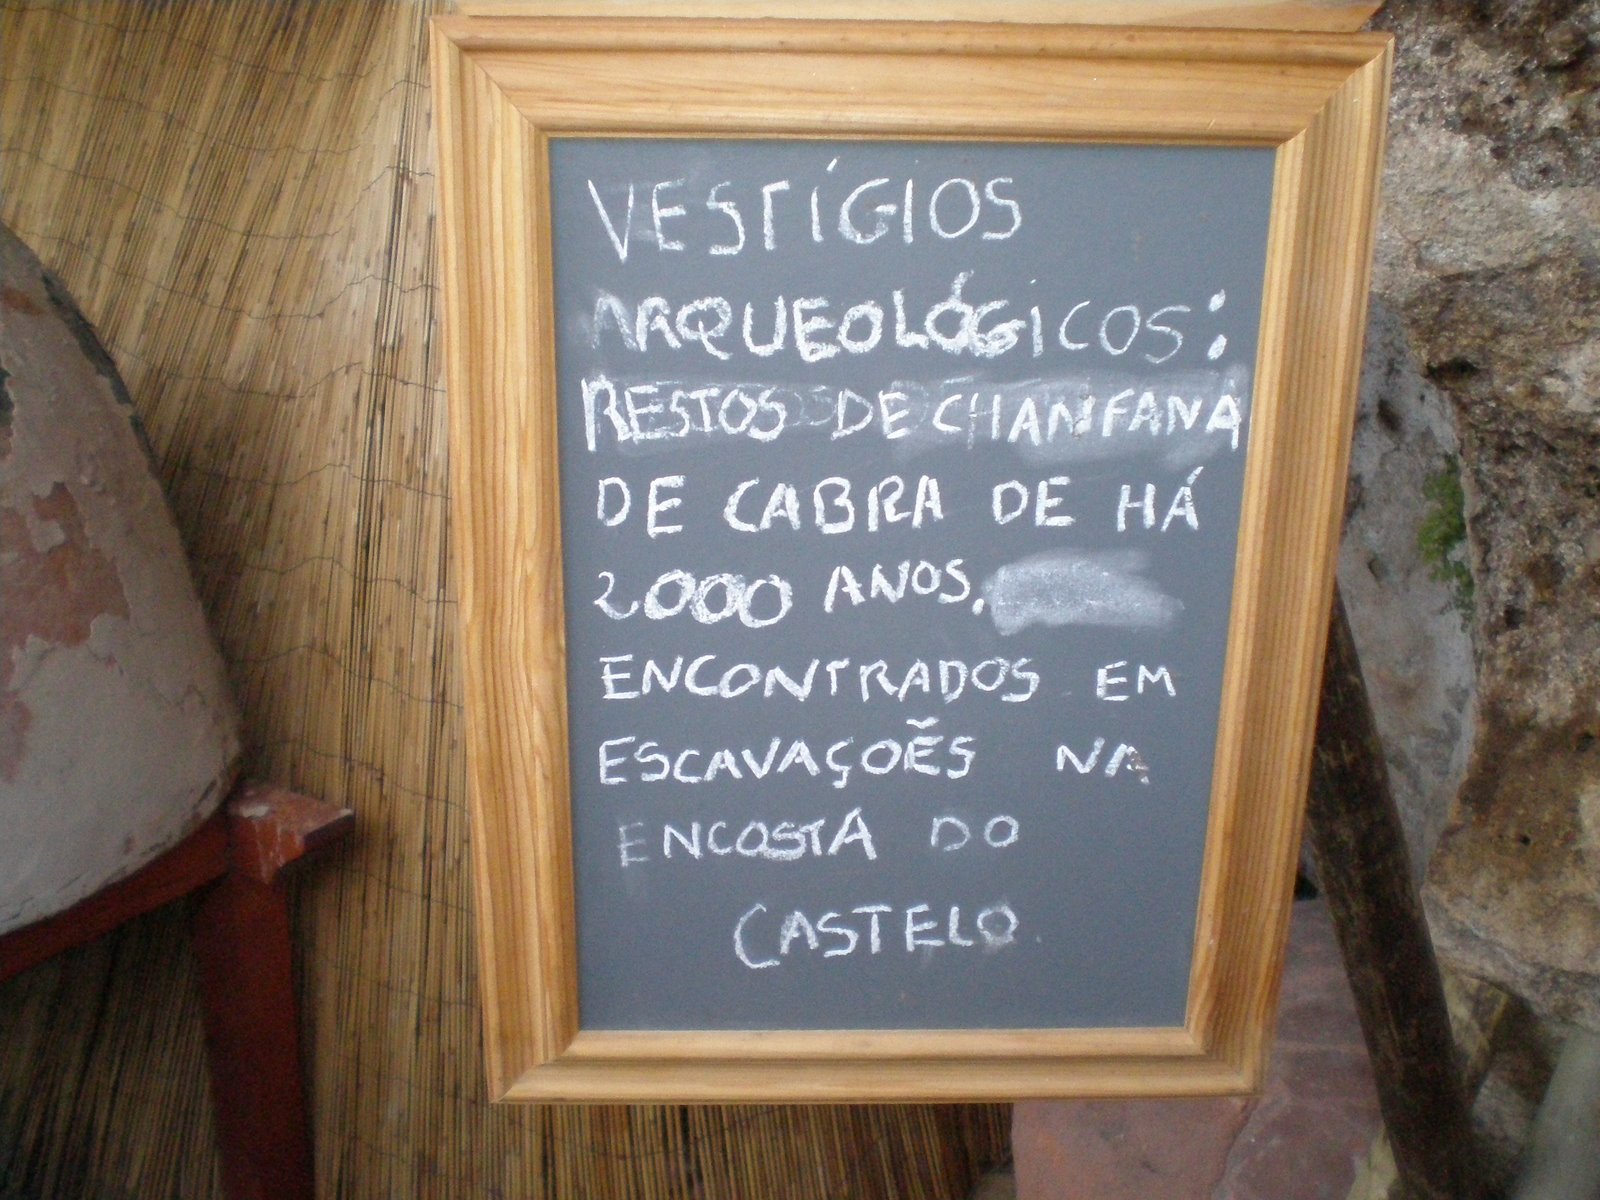 VESTÍGIOS
ARQUEOLÓGICOS:
RESTOS DE CHANFANA
DE CABRA DE HÁ
2000 ANOS.
ENCONTRADOS EM
ESCAVAÇOẼS NA
ENCOSTA DO
CASTELO